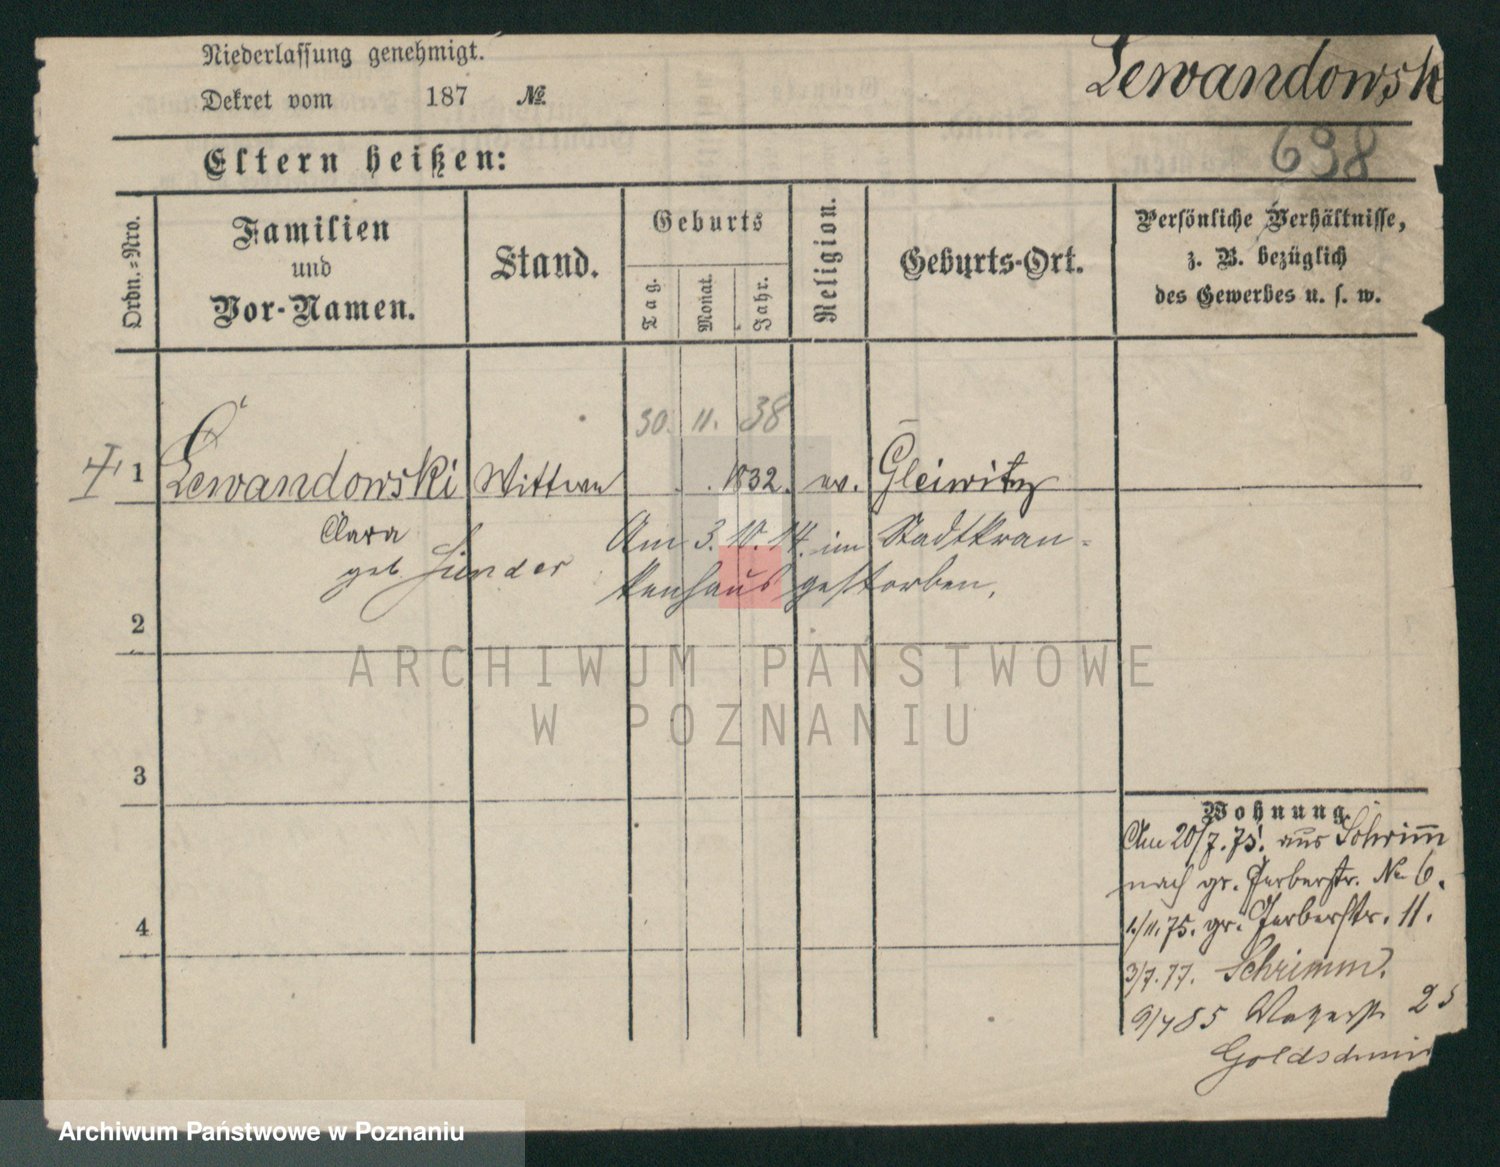 Niederlassung genehmigt.
Dekret vom 187 №
Lewandowsk
698
Eltern heißen:
Ordn.-Nro.
Familien
und
Vor-Namen.
Stand.
Geburts
Tag.
Monat.
Jahr.
Religion.
Geburts-Ort.
Persönliche Verhältnisse,
z. B. bezüglich
des Gewerbes u. s. w.
30. 11. 38
1 Lewandowski Wittwe 1832. ev. Gleiwitz
Clara
geb.
Am 3. 10. 14. im Stadtkran-
kenhaus gestorben.
2
3
4
Wohnung
Am 20/7. 75. aus Schrimm
nach gr. Gerberstr. No 6.
1./11. 75. gr. Gerberstr. 11.
3/7. 77. Schrimm.
9/4 85 25
ARCHIWUM PAŃSTWOWE
W POZNANIU
Archiwum Państwowe w Poznaniu